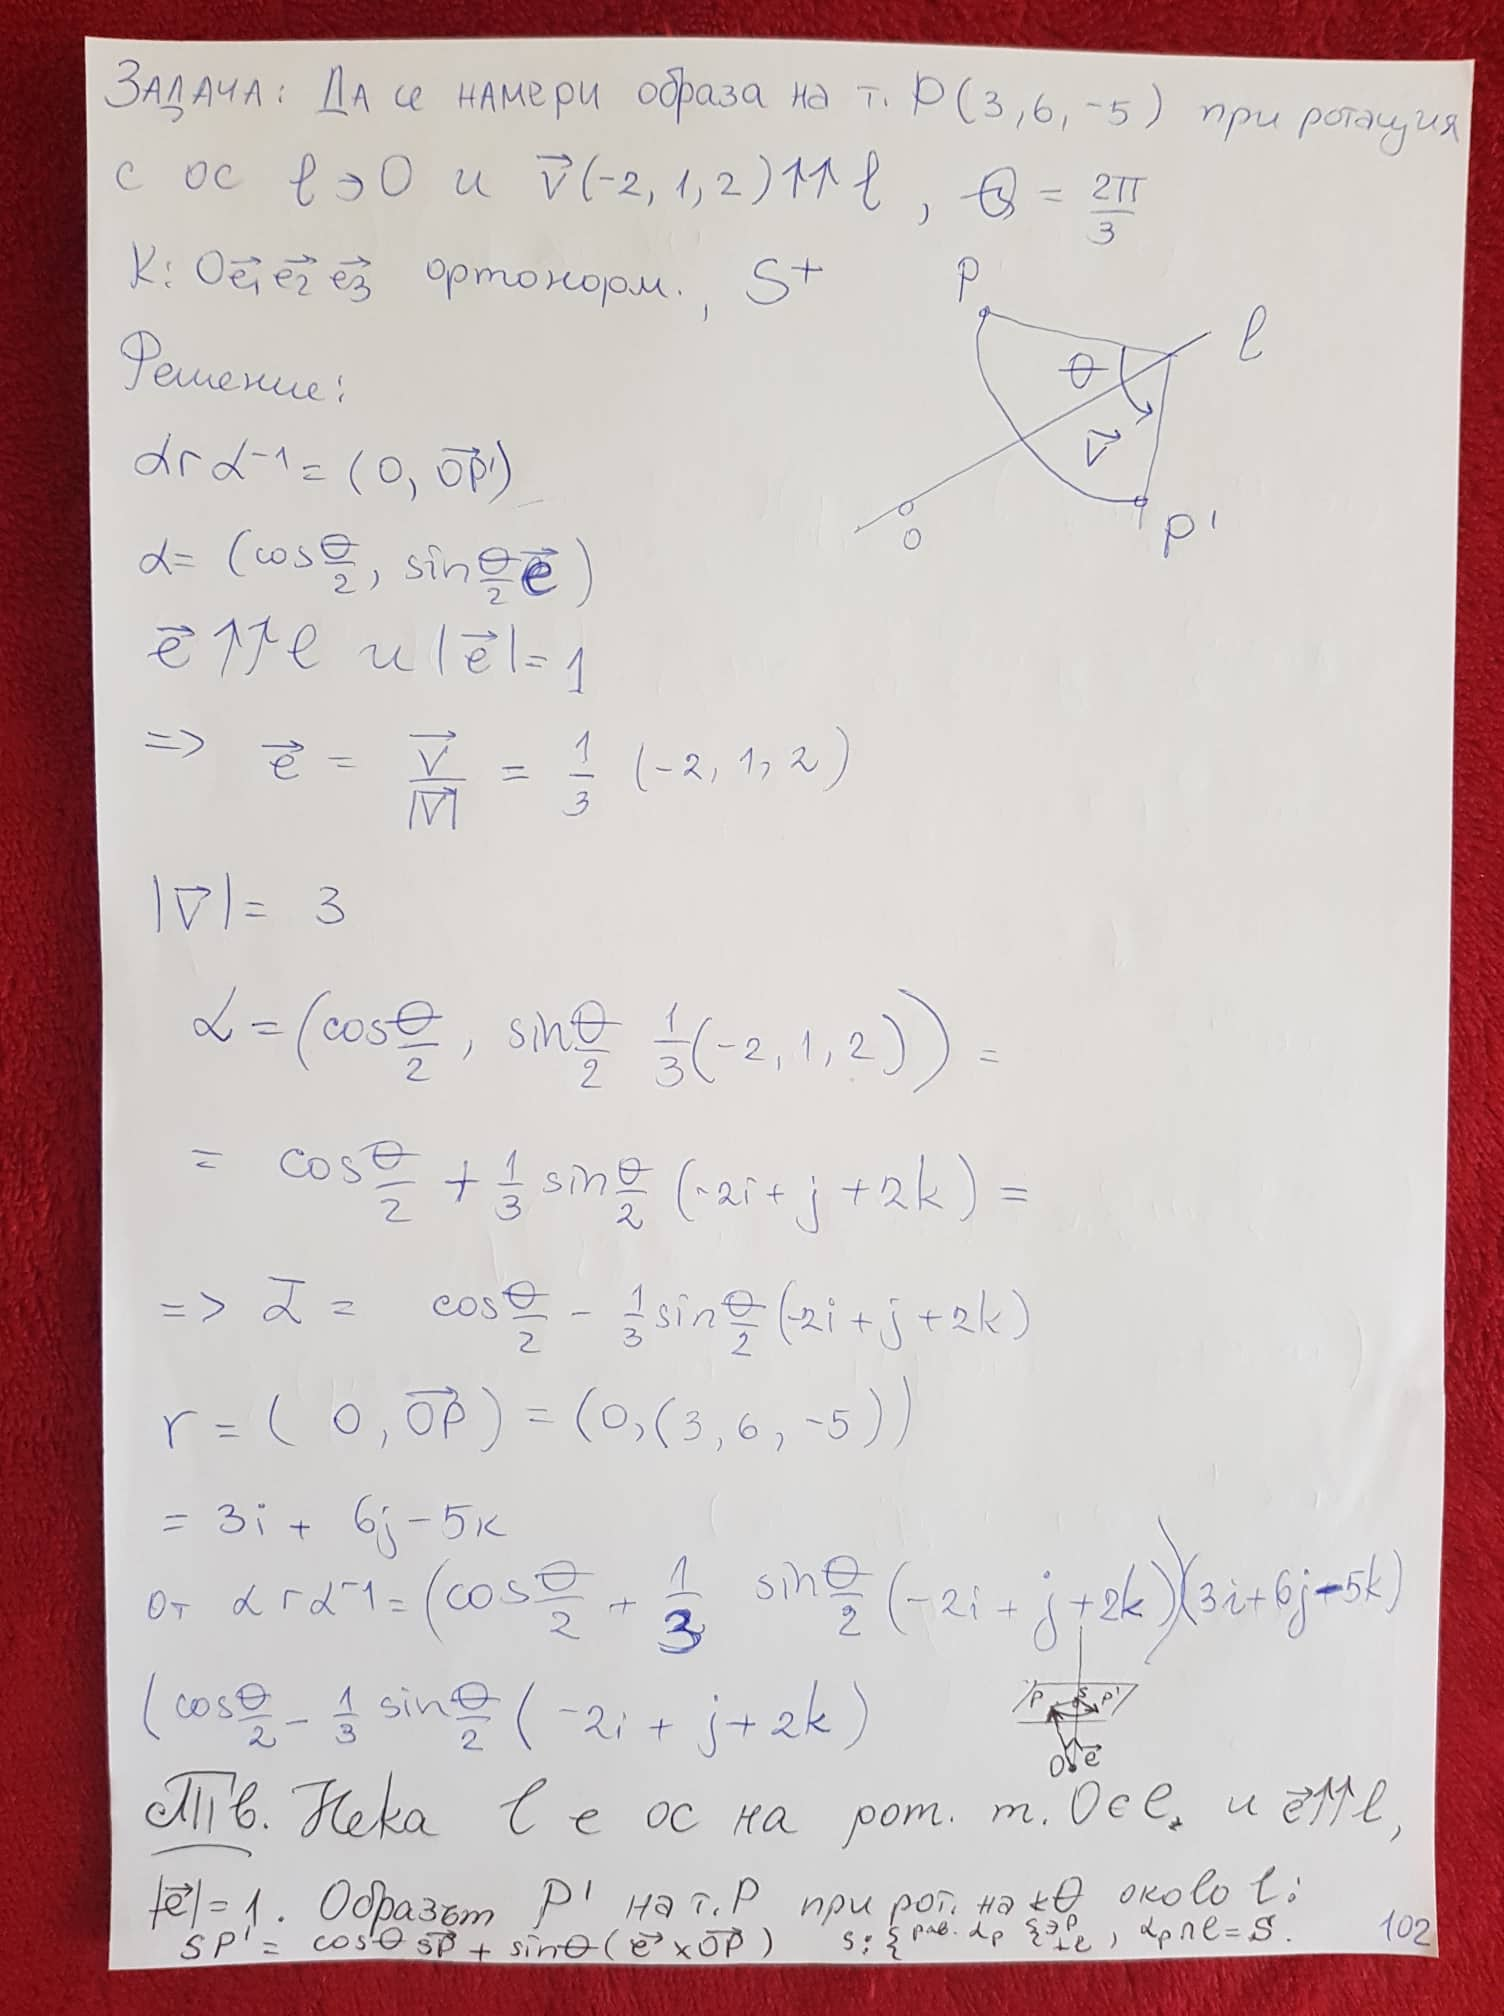 ЗАДАЧА: Да се намери образа на т. P(3,6,-5) при ротация
с ос l∋O и v⃗(-2,1,2)↑↑l, θ = 2π/3
K: Oe⃗₁e⃗₂e⃗₃ ортонорм., S⁺
P
l
θ
v⃗
O
P'
Решение:
αrα⁻¹ = (0, OP⃗')
α = (cos θ/2, sin θ/2 e⃗)
e⃗↑↑l и |e⃗| = 1
=> e⃗ = v⃗/|v⃗| = 1/3 (-2,1,2)
|v⃗| = 3
α = (cos θ/2, sin θ/2 1/3(-2,1,2)) =
= cos θ/2 + 1/3 sin θ/2 (-2i+j+2k) =
=> α̅ = cos θ/2 - 1/3 sin θ/2 (-2i+j+2k)
r = (0, OP⃗) = (0,(3,6,-5))
= 3i + 6j-5k
От αrα⁻¹ = (cos θ/2 + 1/3 sin θ/2 (-2i+j+2k))(3i+6j-5k)
(cos θ/2 - 1/3 sin θ/2 (-2i+j+2k)
P S P'
O e⃗
Тв. Нека l е ос на рот. т. O∈l и e⃗↑↑l,
|e⃗|=1. Образът P' на т. P при рот. на ±θ около l:
SP' = cosθ SP⃗ + sinθ (e⃗ × OP⃗) S: { рав. αp { ∋P ⊥l, αp∩l=S.
102